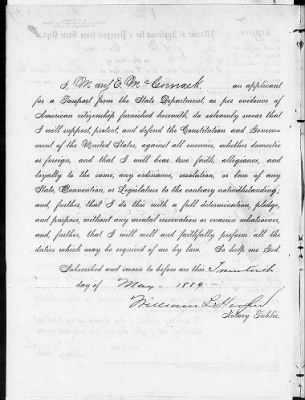 I, Mary E. McCormack, an applicant
for a Passport from the State Department, as per evidence of
American citizenship furnished herewith, do solemnly swear that
I will support, protect, and defend the Constitution and Govern-
ment of the United States, against all enemies, whether domestic
or foreign, and that I will bear true faith, allegiance, and
loyalty to the same, any ordinance, resolution, or law of any
State, Convention, or Legislature to the contrary notwithstanding;
and, further, that I do this with a full determination, pledge,
and purpose, without any mental reservation or evasion whatsoever,
and, further, that I will well and faithfully perform all the
duties which may be required of me by law. So help me God.
Subscribed and sworn to before me this
day of May 1889
William L.
Notary Public.